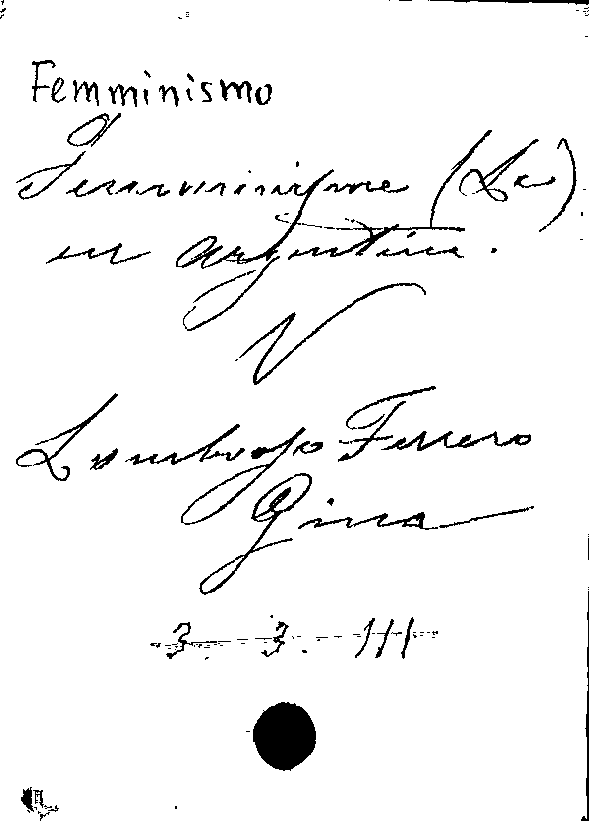 Femminismo
Femminisme (Le)
en Argentine.
V
Lombroso Ferrero
Gina
3. 3. III